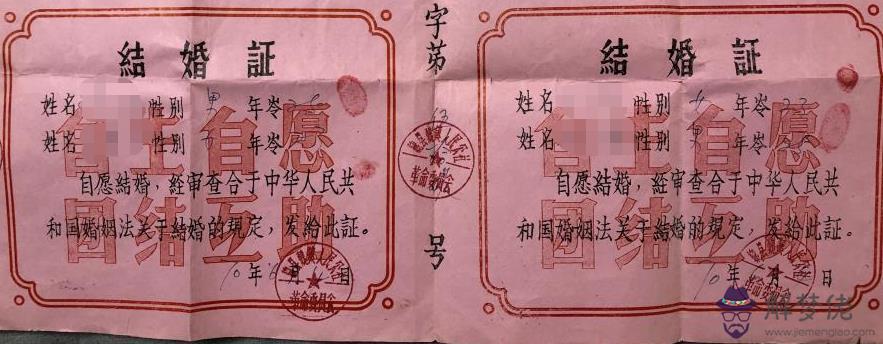 結婚証
姓名 性别 男 年岺
姓名 性别 女 年岺
自主自愿
自愿結婚，経审查合于中华人民共
团结互助
和国婚姻法关于結婚的规定，发給此証。
年 月 日
革命委員会
字第
号
人民公社
革命委員会
結婚証
姓名 性别 女 年岺 22
姓名 性别 男 年岺
自主自愿
自愿結婚，経审查合于中华人民共
团结互助
和国婚姻法关于結婚的规定，发給此証。
年 月 日
解梦佬
www.jiemenglao.com